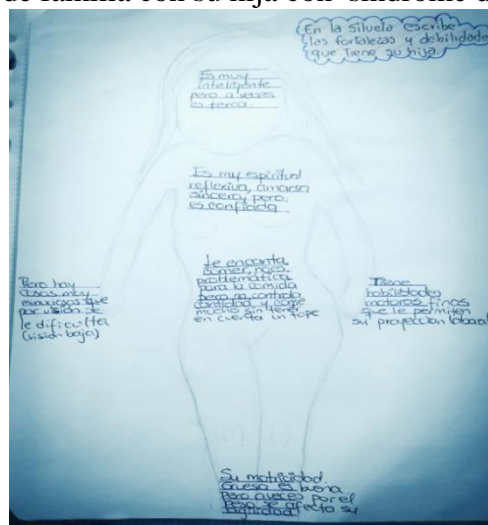 de familia con su hija con
En la silueta escribe
las fortalezas y debilidade
que tiene su hija.
Es muy
inteligente
pero a veces
es terca
Es muy espiritual
reflexiva, amorosa
sincera, pero
es confiada
Le encanta
comer, no es
problemática
para la comida
pero no controla
cantidad y come
mucho sin tener
en cuenta un tope
Pero hay
cosas muy
minuciosas que
por visión se
le dificulta
(visión baja)
Tiene
habilidades
motoras finas
que le permiten
su proyección laboral
Su motricidad
gruesa es buena
pero a veces por el
peso se afecta su